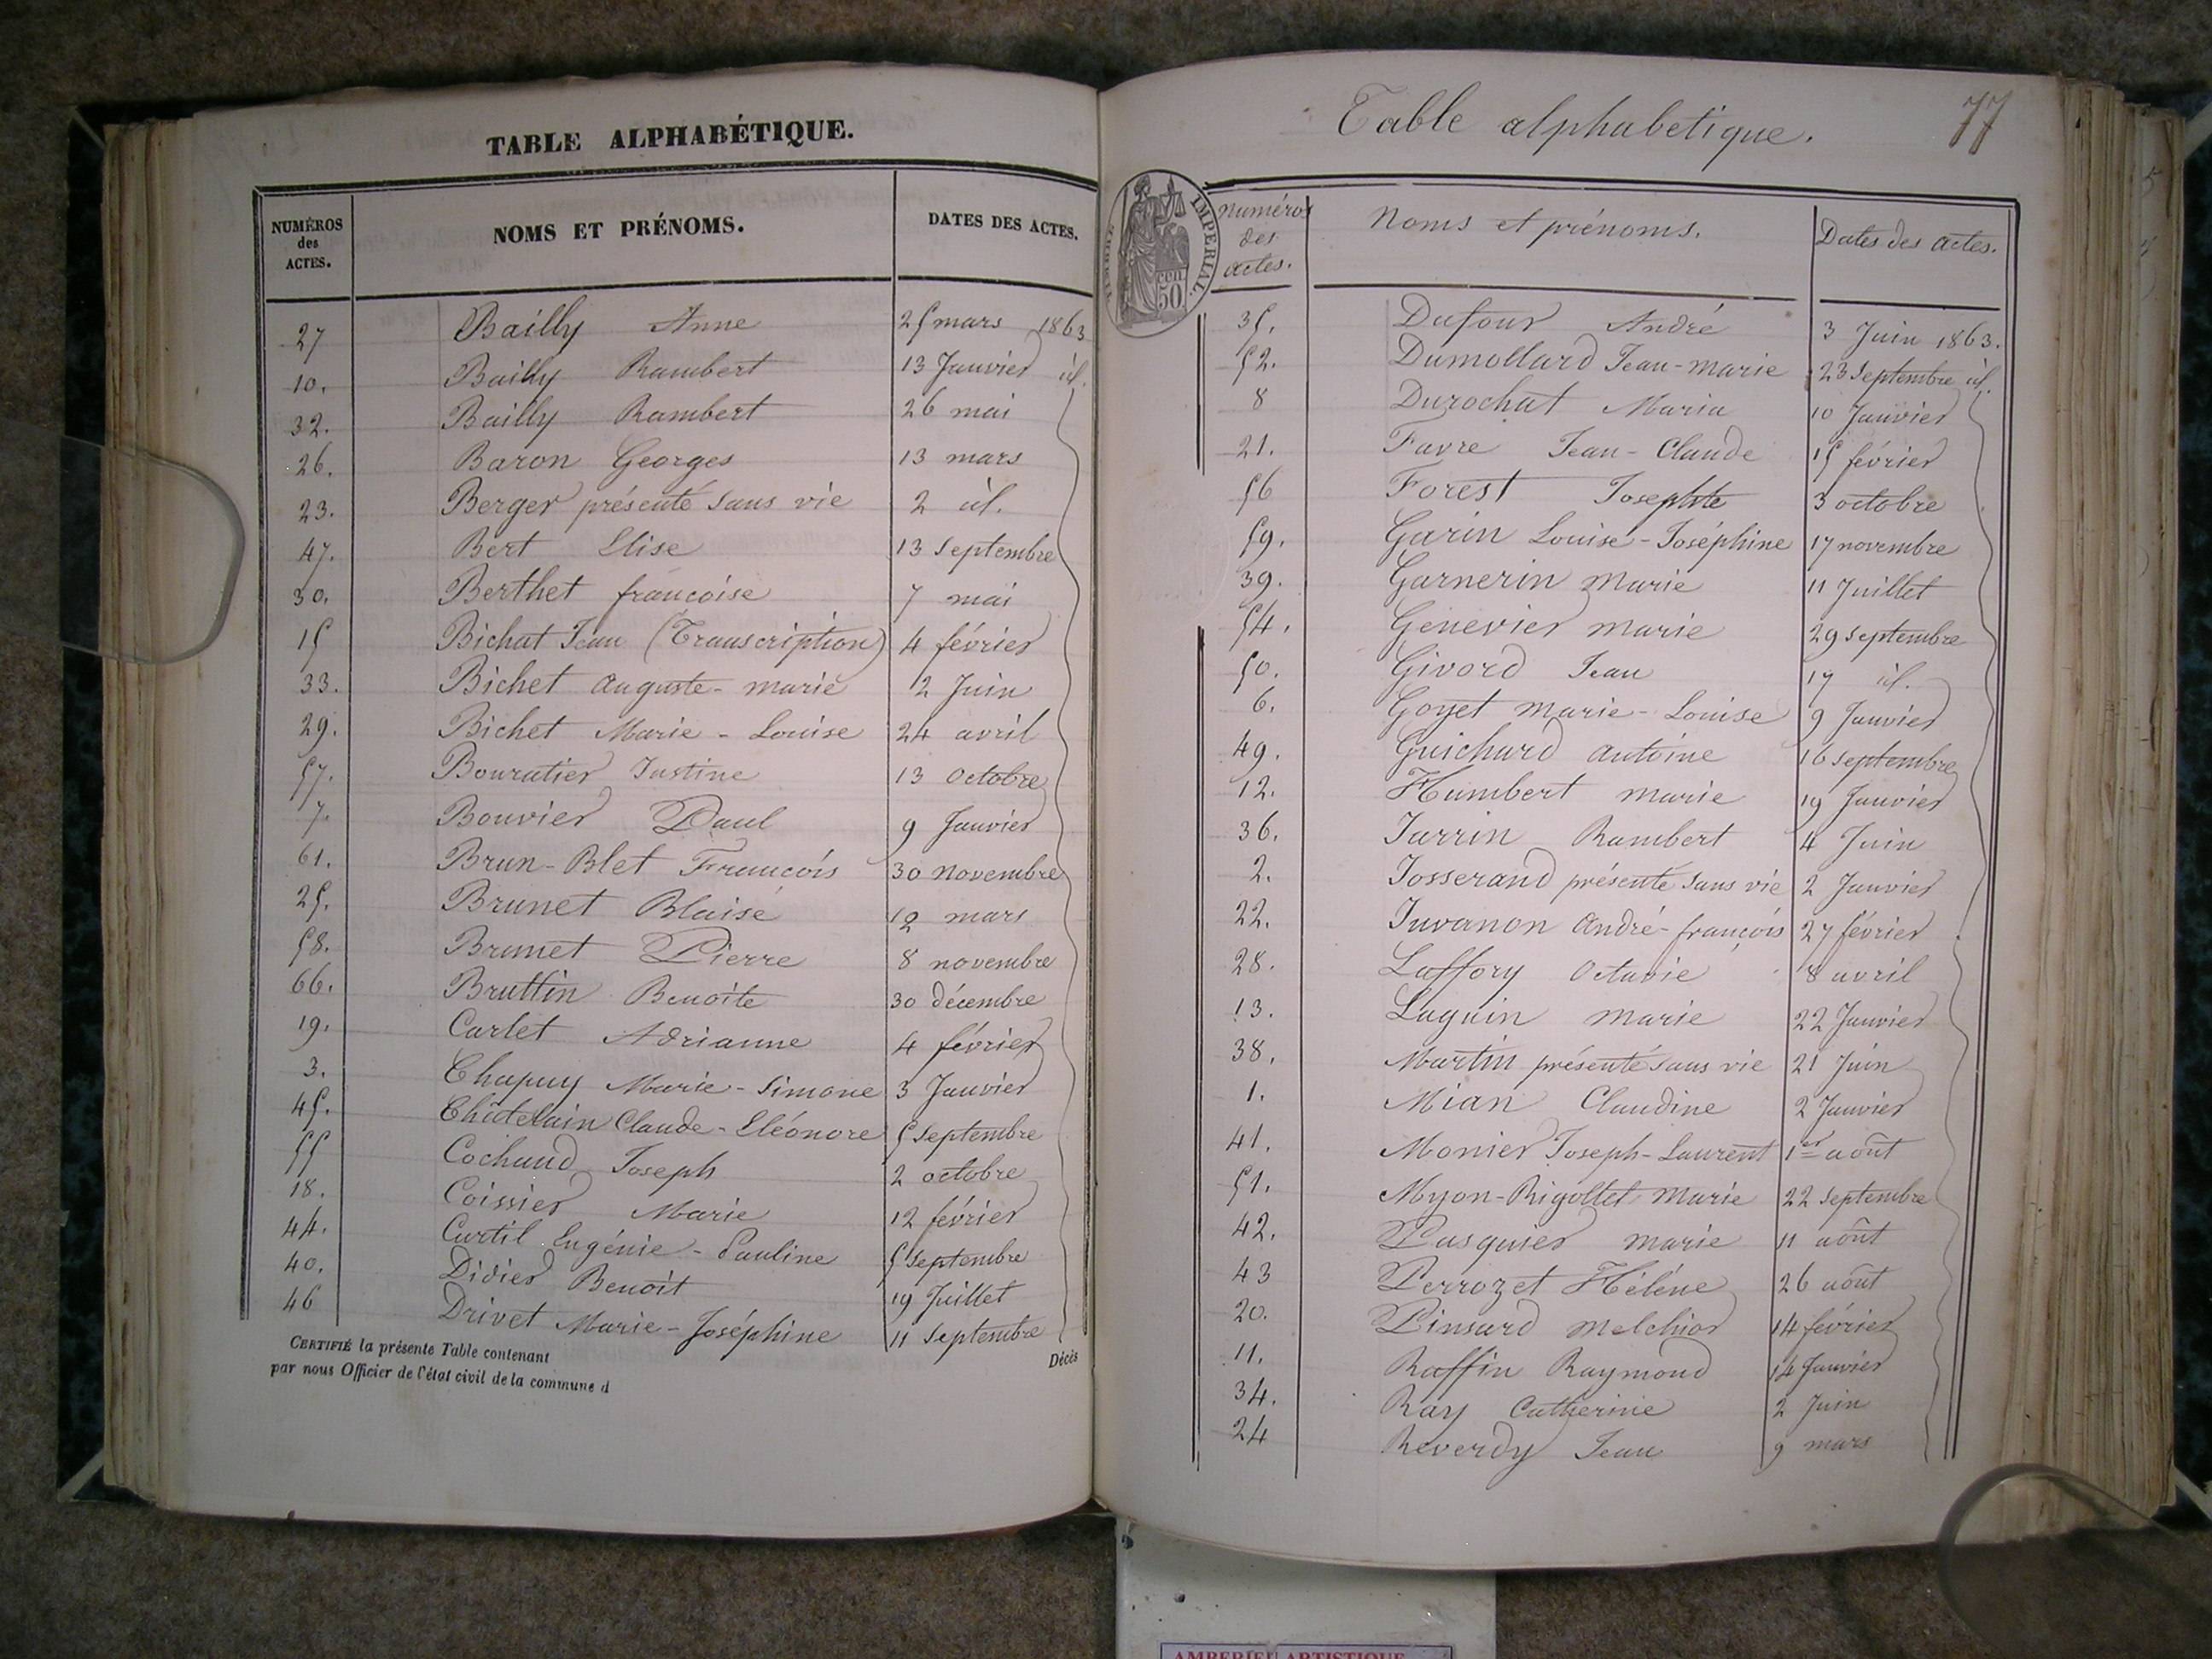 TABLE ALPHABÉTIQUE.
NUMÉROS des ACTES. NOMS ET PRÉNOMS. DATES DES ACTES.
27 Bailly Anne 25 mars 1863
10. Bailly Rambert 13 Janvier id.
32. Bailly Rambert 26 mai
26. Baron Georges 13 mars
23. Berger présenté sans vie 2 id.
47. Bert Elise 13 Septembre
30. Berthet françoise 7 mai
15 Bichat Jean (Transcription) 4 février
33. Bichet Auguste-marie 2 Juin
29. Bichet Marie-Louise 24 avril
57. Bouratier Justine 13 Octobre
7. Bouvier Paul 9 Janvier
61. Brun-Blet François 30 novembre
25. Brunet Blaise 12 mars
58. Brunet Pierre 8 novembre
66. Bruttin Benoite 30 décembre
19. Carlet Adrianne 4 février
3. Chapuy Marie-Simone 3 Janvier
45. Châtelain Claude-Eléonore 5 Septembre
55 Cochand Joseph 2 octobre
18. Coissier Marie 12 février
44. Curtil Eugénie-Pauline 5 Septembre
40. Didier Benoit 19 Juillet
46 Drivet Marie-Joséphine 11 Septembre
CERTIFIÉ la présente Table contenant Décès
par nous Officier de l'état civil de la commune d
Table alphabetique. 77
TIMBRE IMPERIAL. 50 cen
Numéros des actes. Noms et prénoms. Dates des actes.
35. Dufour André 3 Juin 1863.
52. Dumollard Jean-marie 23 Septembre id.
8 Durochat Maria 10 Janvier
21. Favre Jean-Claude 15 février
56 Forest Josephte 3 octobre
59. Garin Louise-Joséphine 17 novembre
39. Garnerin Marie 11 Juillet
54. Genevier marie 29 Septembre
50. Givord Jean 17 id.
6. Goyet marie-Louise 9 Janvier
49. Guichard antoine 16 septembre
12. Humbert marie 19 Janvier
36. Jarrin Rambert 4 Juin
2. Josserand présenté sans vie 2 Janvier
22. Juvanon André-françois 27 février
28. Laffory Octavie 8 avril
13. Laguin marie 22 Janvier
38. Martin présenté sans vie 21 Juin
1. Mian Claudine 2 Janvier
41. Monier Joseph-Laurent 1er août
51. Myon-Rigollet Marie 22 septembre
42. Pasquier marie 11 août
43 Perrozet Hélène 26 août
20. Pinsard melchior 14 février
11. Raffin Raymond 14 Janvier
34. Ray Catherine 2 Juin
24 Reverdy Jean 9 mars
AMBERIEU ARTISTIQUE